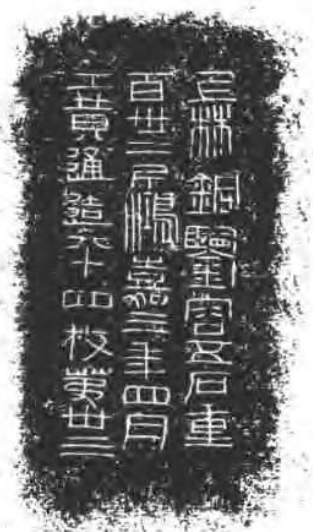 上林銅鑒容五石重
百卅二斤鴻嘉三年四月
工黃通造八十四枚第卅三